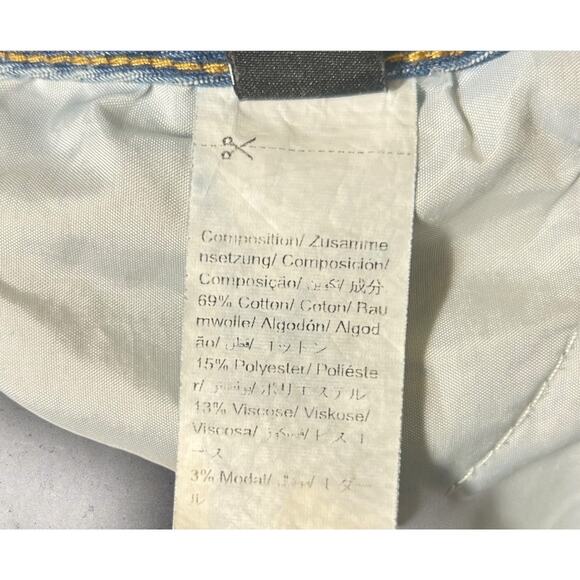 Composition/ Zusamme
nsetzung/ Composición/
Composição/ تكوين/ 成分
69% Cotton/ Coton/ Bau
mwolle/ Algodón/ Algod
ão/ قطن/ コットン
15% Polyester/ Poliéste
r/ بوليستر/ ポリエステル
13% Viscose/ Viskose/
Viscosa/ فسكوز/ ビスコ
ース
3% Modal/ مودال/ モダー
ル